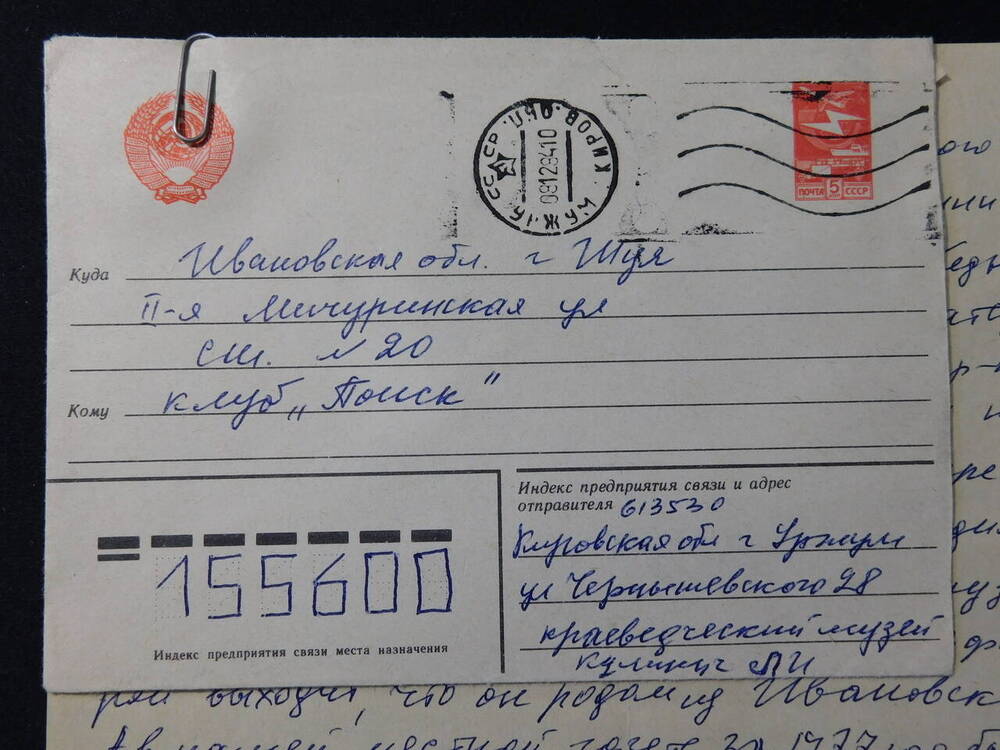 СССР КИРОВ.ОБЛ. УРЖУМ
081284 10
ПОЧТА 5 СССР
Куда Ивановская обл. г Шуя
II-я Мичуринская ул
сш. N 20
Кому клуб „Поиск"
Индекс предприятия связи и адрес
отправителя 613530
Кировская обл г Уржум
ул Чернышевского 28
краеведческий музей
ЛИ
155600
Индекс предприятия связи места назначения
ого
выходит, что он родом из Ивановск
А в нашей местной газете за 1977